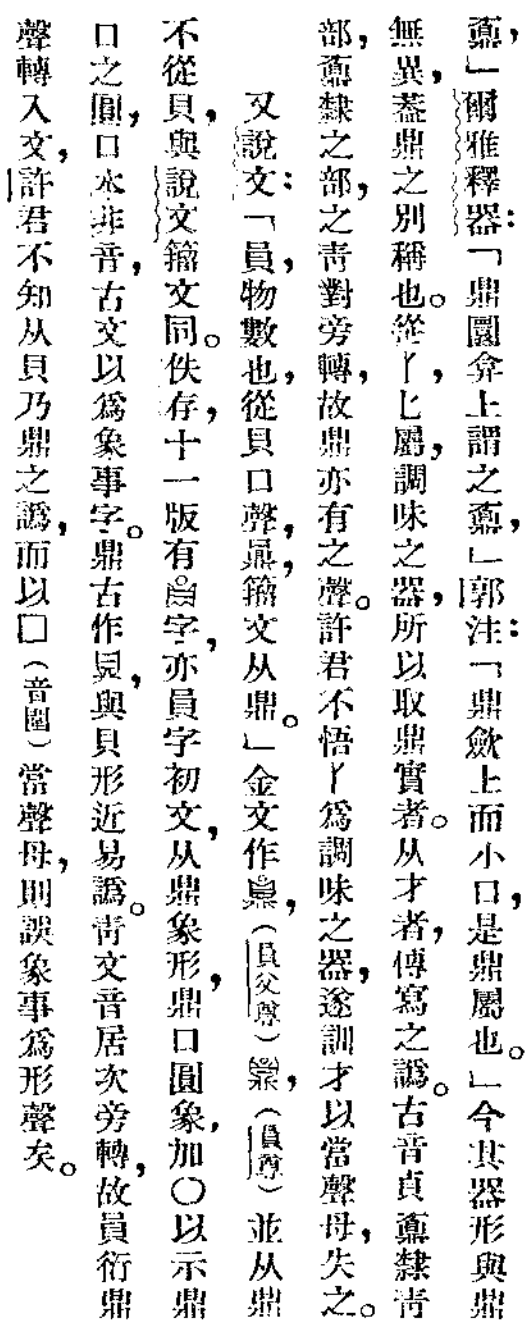 鼒，」爾雅釋器：「鼎圜弇上謂之鼒，」郭注：「鼎歛上而小口，是鼎屬也。」今其器形與鼎
無異，葢鼎之別稱也。從丫，匕屬，調味之器，所以取鼎實者。从才者，傳寫之譌。古音貞鼒隸青
部，鼒隸之部，之靑對旁轉，故鼎亦有之聲。許君不悟丫爲調味之器，遂訓才以當聲母，失之。
又說文：「員，物數也，從貝口聲，鼏，籒文从鼎。」金文作（員父尊）（員尊）並从鼎
不從貝，與說文籒文同。佚存，十一版有字，亦員字初文，从鼎象形，鼎口圓象，加〇以示鼎
口之圓，口本非音，古文以爲象事字。鼎古作㫒，與貝形近易譌。靑文音居次旁轉，故員衍鼎
聲轉入文，許君不知从貝乃鼎之譌，而以囗（音圍）當聲母，則誤象事爲形聲矣。